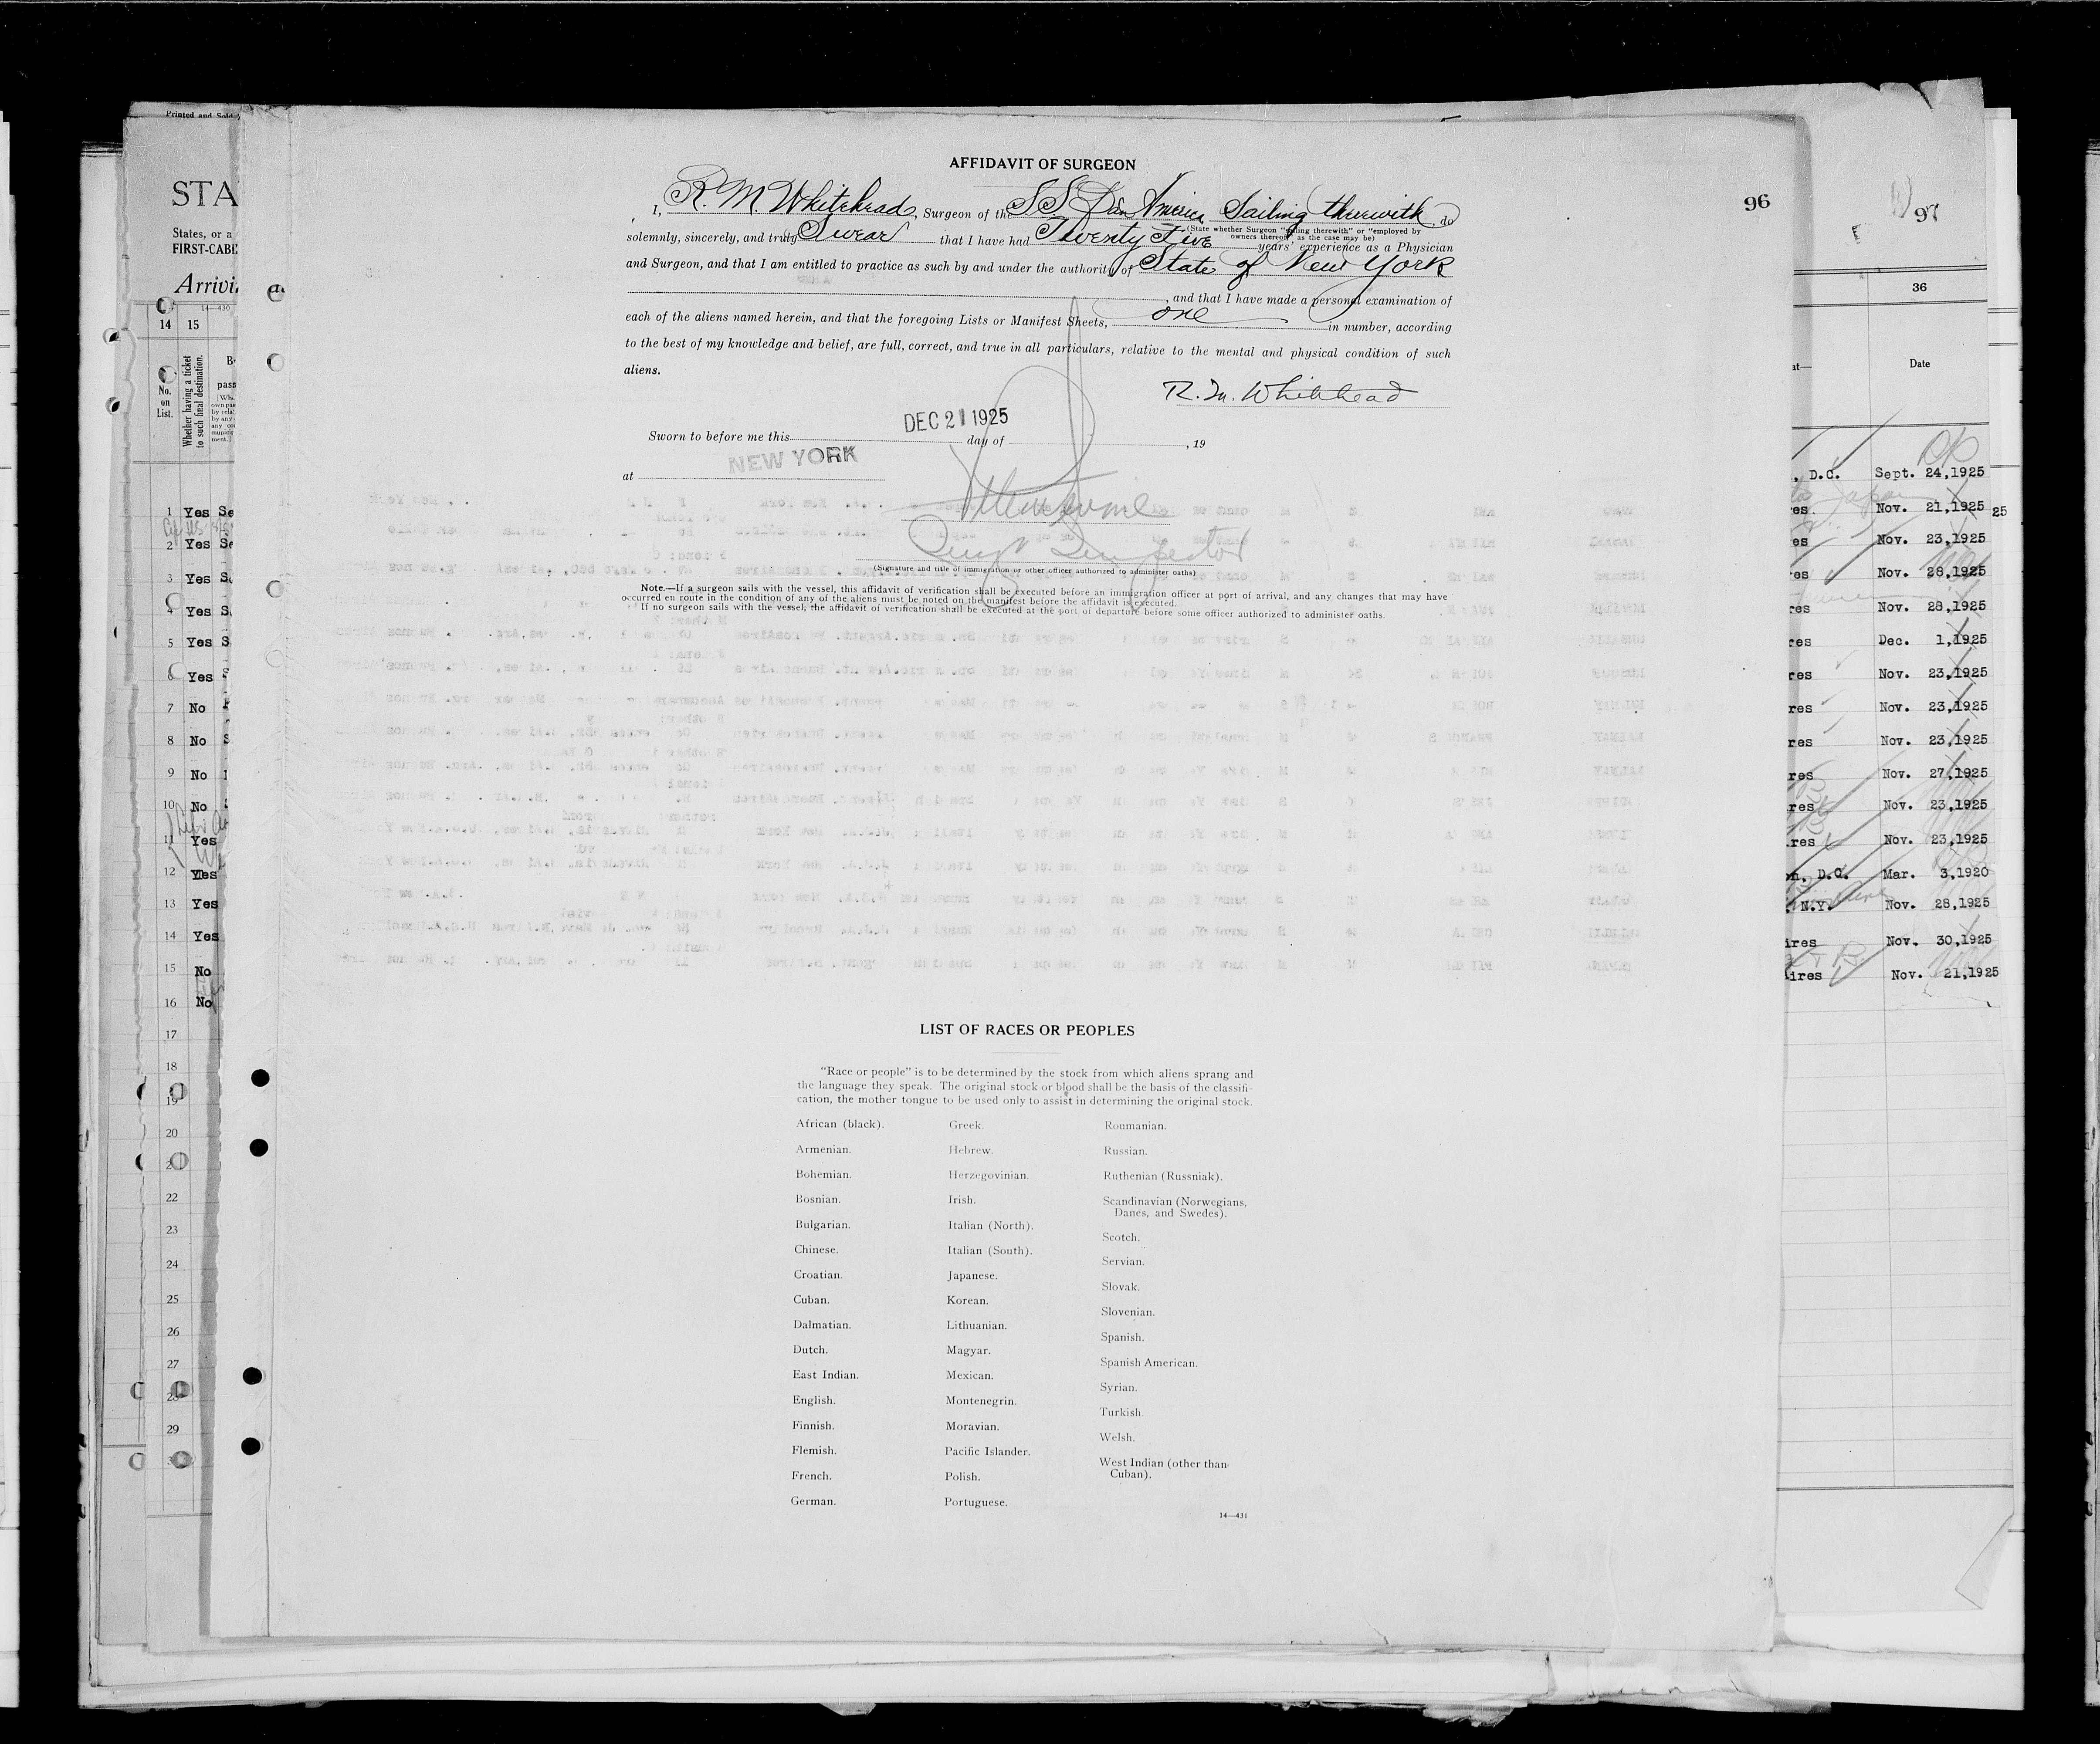 AFFIDAVIT OF SURGEON
96
97
I, R. M. Whitehead, Surgeon of the SS Pan America Sailing therewith do
(State whether Surgeon "sailing therewith" or "employed by
owners thereof," as the case may be)
solemnly, sincerely, and truly Swear that I have had Twenty Five years' experience as a Physician
and Surgeon, and that I am entitled to practice as such by and under the authority of State of New York
, and that I have made a personal examination of
each of the aliens named herein, and that the foregoing Lists or Manifest Sheets, one in number, according
to the best of my knowledge and belief, are full, correct, and true in all particulars, relative to the mental and physical condition of such
aliens.
R. M. Whitehead
DEC 21 1925
Sworn to before me this day of , 19
at NEW YORK
Inspector
(Signature and title of immigration or other officer authorized to administer oaths)
Note.—If a surgeon sails with the vessel, this affidavit of verification shall be executed before an immigration officer at port of arrival, and any changes that may have
occurred en route in the condition of any of the aliens must be noted on the manifest before the affidavit is executed.
If no surgeon sails with the vessel, the affidavit of verification shall be executed at the port of departure before some officer authorized to administer oaths.
LIST OF RACES OR PEOPLES
"Race or people" is to be determined by the stock from which aliens sprang and
the language they speak. The original stock or blood shall be the basis of the classifi-
cation, the mother tongue to be used only to assist in determining the original stock.
African (black).
Armenian.
Bohemian.
Bosnian.
Bulgarian.
Chinese.
Croatian.
Cuban.
Dalmatian.
Dutch.
East Indian.
English.
Finnish.
Flemish.
French.
German.
Greek.
Hebrew.
Herzegovinian.
Irish.
Italian (North).
Italian (South).
Japanese.
Korean.
Lithuanian.
Magyar.
Mexican.
Montenegrin.
Moravian.
Pacific Islander.
Polish.
Portuguese.
Roumanian.
Russian.
Ruthenian (Russniak).
Scandinavian (Norwegians,
Danes, and Swedes).
Scotch.
Servian.
Slovak.
Slovenian.
Spanish.
Spanish American.
Syrian.
Turkish.
Welsh.
West Indian (other than
Cuban).
14—431
Printed and Sold
STA
States, or a
FIRST-CABI
Arrivi
14—430
14 15
No.
on
List.
Whether having a ticket
to such final destination.
1 Yes Se
2 Yes Se
3 Yes S
4 Yes S
5 Yes S
6 Yes
7 No
8 No S
9 No
10 No
11 Yes
12 Yes
13 Yes
14 Yes
15 No
16 No
17
18
19
20
22
23
24
25
26
27
28
29
36
Date
, D.C. Sept. 24,1925
res Nov. 21,1925
25
es Nov. 23,1925
res Nov. 28,1925
res Nov. 28,1925
res Dec. 1,1925
res Nov. 23,1925
res Nov. 23,1925
res Nov. 23,1925
res Nov. 27,1925
res Nov. 23,1925
res Nov. 23,1925
on, D.C. Mar. 3,1920
N.Y. Nov. 28,1925
ires Nov. 30,1925
ires Nov. 21,1925